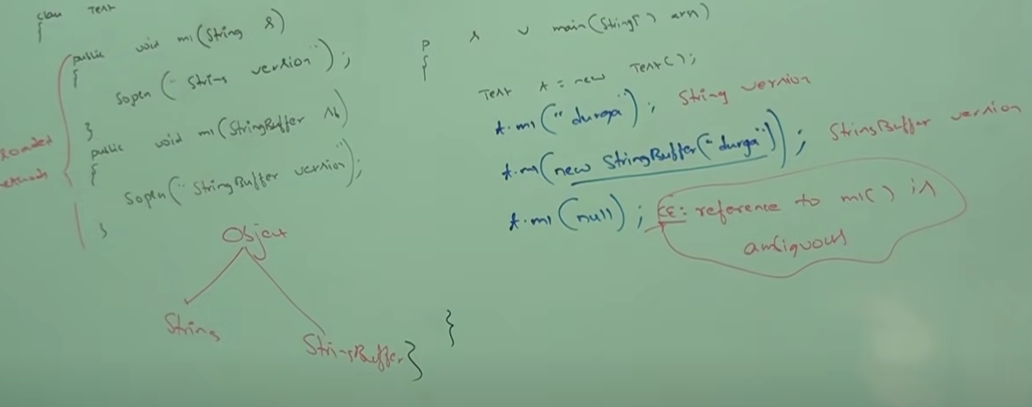 class Test
{
public void m1(String s)
{
sopln("String version");
}
public void m1(StringBuffer sb)
{
sopln("StringBuffer version");
}
Object
String
StringBuffer
}
p s v main(String[] args)
{
Test t = new Test();
t.m1("durga"); String version
t.m1(new StringBuffer("durga")); StringBuffer version
t.m1(null); CE: reference to m1() is
ambiguous
}